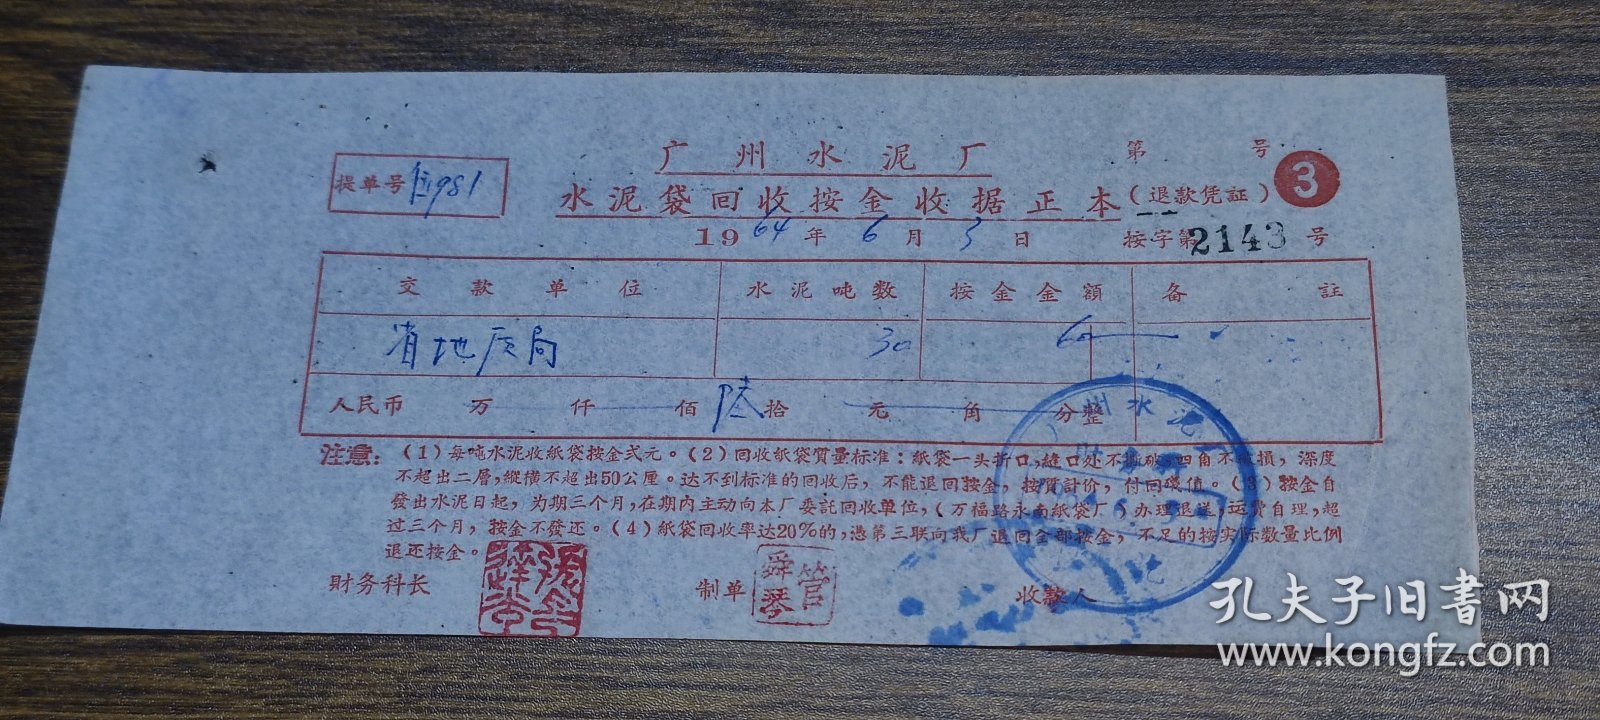 广州水泥厂
第 号
3
提单号 981
水泥袋回收按金收据正本（退款凭証）
1964年6月3日
按字第2143号
交款单位 水泥吨数 按金金額 备註
省地质局 30 60
人民币 万 仟 佰 陆拾 元 角 分整
注意：（1）每吨水泥收紙袋按金弍元。（2）回收紙袋質量标准：紙袋一头折口，縫口处不撕破，四角不破損，深度
不超出二層，縱橫不超出50公厘。达不到标准的回收后，不能退回按金，按質計价，付回殘值。（3）按金自
發出水泥日起，为期三个月，在期内主动向本厂委託回收单位，（万福路永南紙袋厂）办理退送，运費自理，超
过三个月，按金不發还。（4）紙袋回收率达20%的，憑第三联向我厂退回全部按金，不足的按实际数量比例
退还按金。
財务科长 制单 管舜琴 收款人
孔夫子旧書网
www.kongfz.com